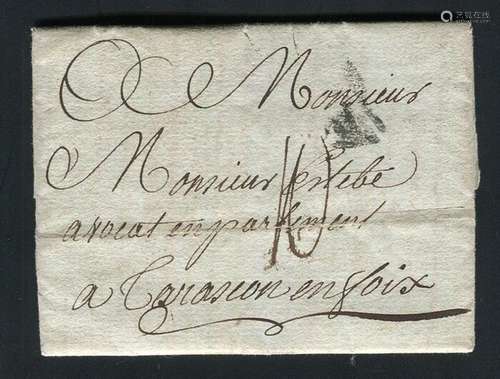 A
Monsieur
Monsieur Estebé
avocat en parlement
10
a Tarascon en foix